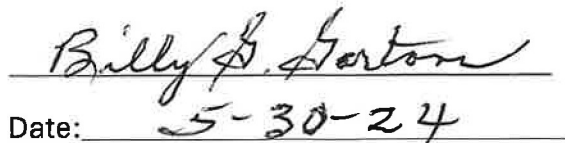 Billy G. Gorton
Date: 5-30-24